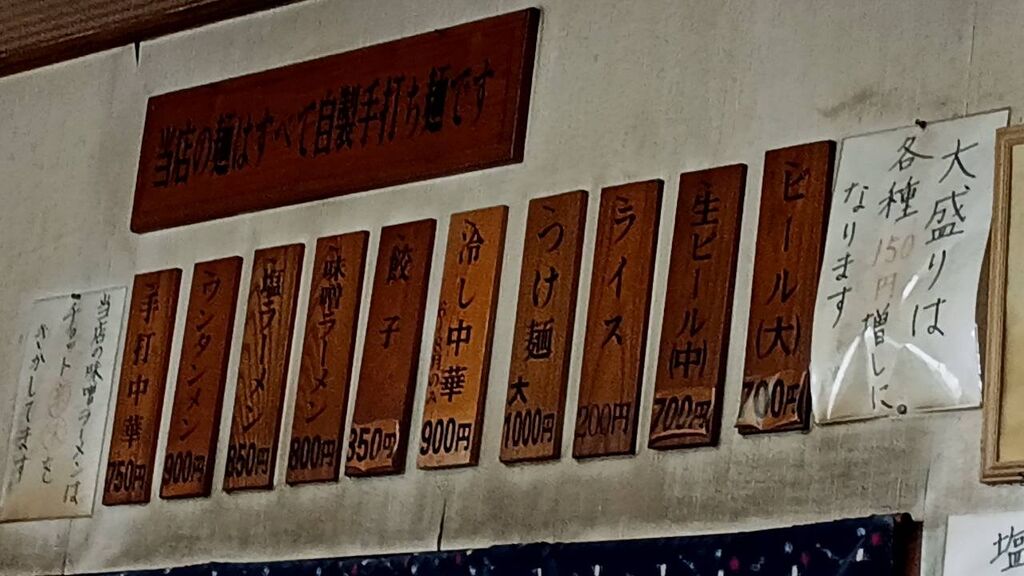 当店の麺はすべて自製手打ち麺です
大盛りは
各種150円増しに。
なります
ビール(大)
700円
生ビール(中)
700円
ライス
200円
つけ麺
大
1000円
冷し中華
900円
餃子
350円
味噌ラーメン
900円
塩ラーメン
850円
ワンタンメン
900円
手打中華
750円
当店の味噌ラーメンは
塩